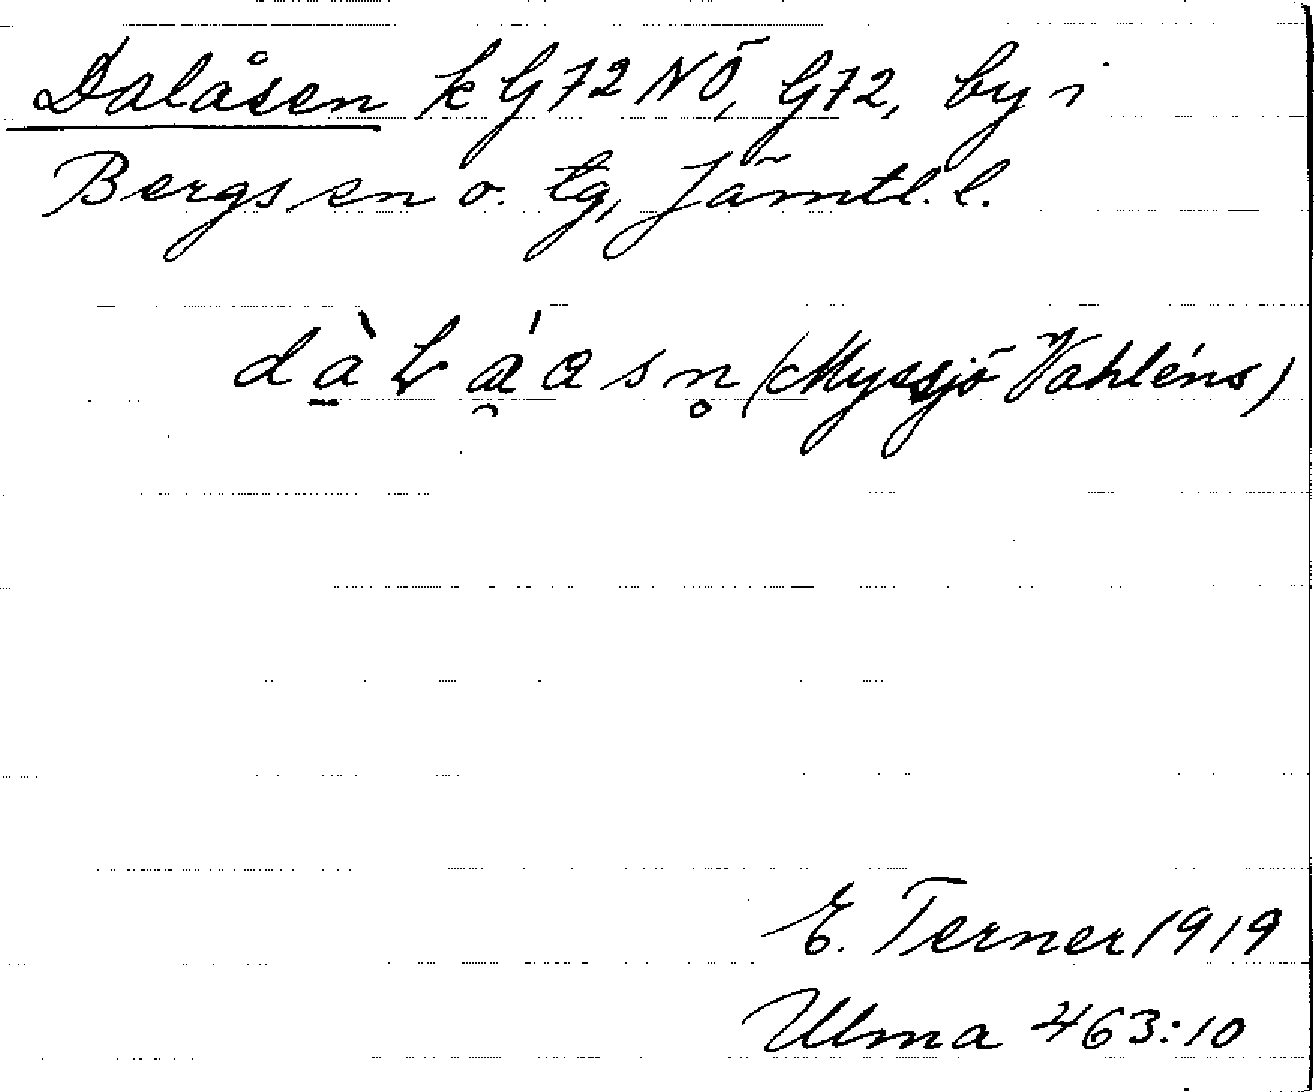 Dalåsen k G72NÖ, G72, by i
Bergs sn o. tg, Jämtl. l.
(Myssjö Vahléns)
E. Terner 1919
Ulma 463:10